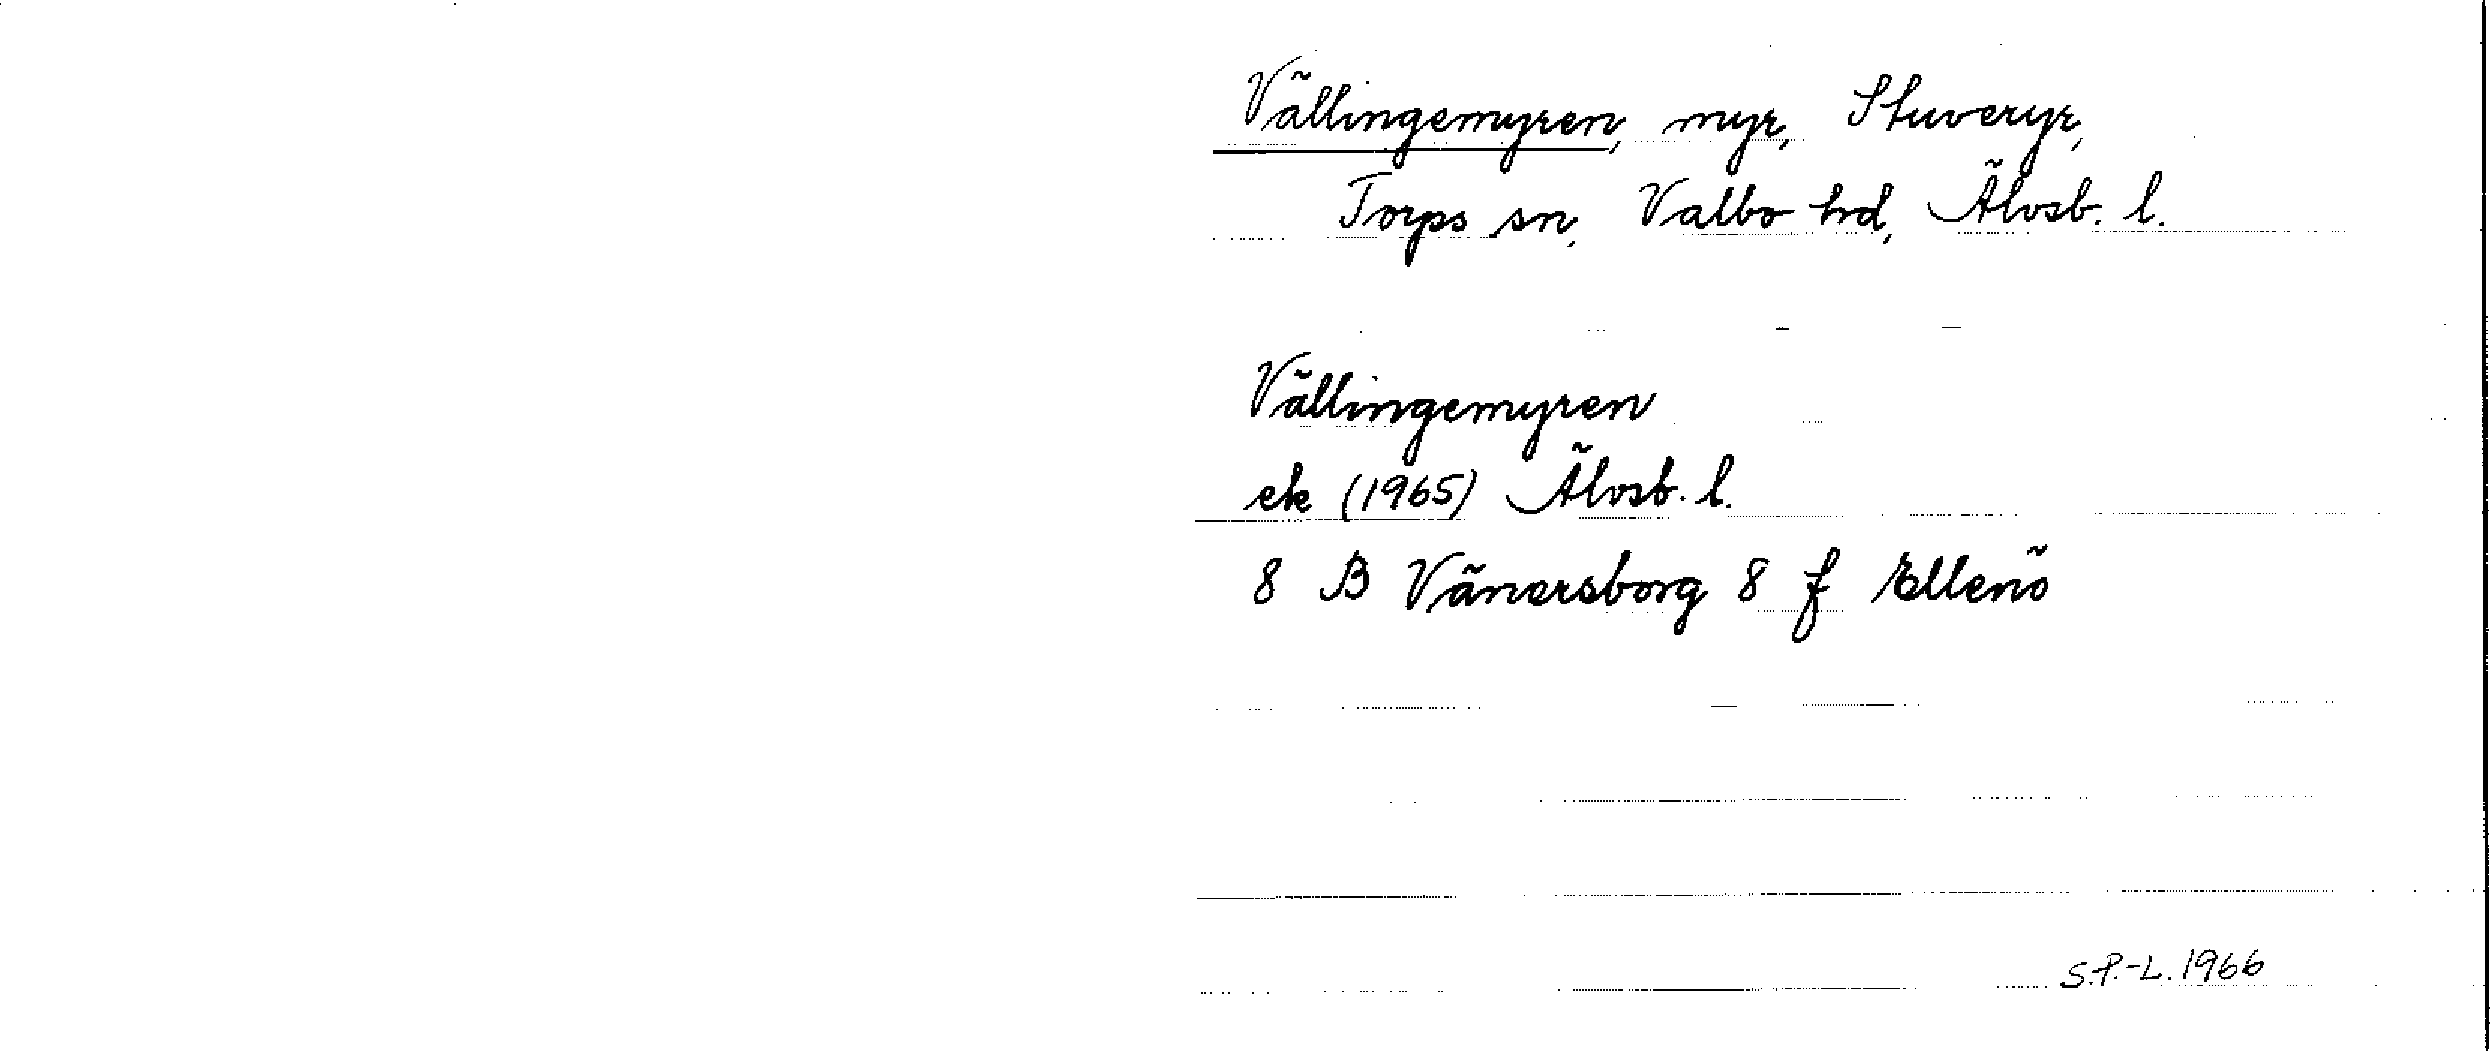 Vällingemyren, myr, Stuveryr,
Torps sn, Valbo hd, Älvsb. l.
Vällingemyren
ek (1965) Älvsb. l.
8 B Vänersborg 8 f Ellenö
S.P.-L. 1966